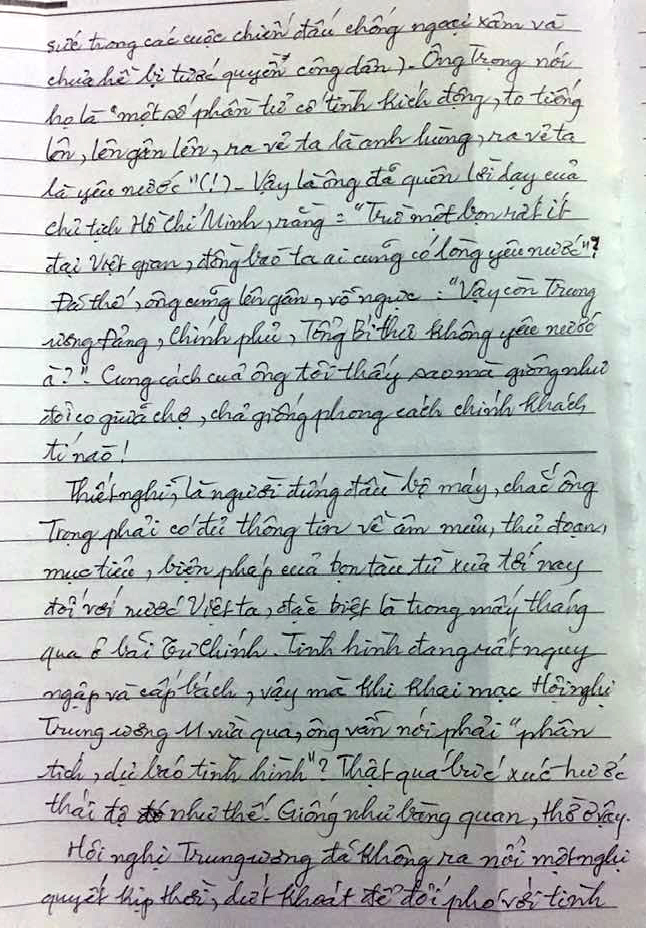 sức trong các cuộc chiến đấu chống ngoại xâm và
chưa hề bị tước quyền công dân). Ông Trọng nói
họ là "một số phần tử cố tình kích động, to tiếng
lên, lên gân lên, ra vẻ ta là anh hùng, ra vẻ ta
là yêu nước "(!). Vậy là ông đã quên lời dạy của
chủ tịch Hồ Chí Minh, rằng: "Trừ một bọn rất ít
đại Việt gian, đồng bào ta ai cũng có lòng yêu nước"?
Đã thế, ông cũng lên gân, vỗ ngực: "Vậy còn Trung
ương Đảng, Chính phủ, Tổng Bí thư không yêu nước
à?". Cung cách của ông tôi thấy sao mà giống như
đôi co giữa chợ, chả giống phong cách chính khách
tí nào!
Thiết nghĩ, là người đứng đầu bộ máy, chắc ông
Trọng phải có đủ thông tin về âm mưu, thủ đoạn,
mục tiêu, biện pháp của bọn tàu từ xưa tới nay
đối với nước Việt ta, đặc biệt là trong mấy tháng
qua ở bãi Tư Chính. Tình hình đang rất nguy
ngập và cấp bách, vậy mà khi khai mạc Hội nghị
Trung ương 11 vừa qua, ông vẫn nói phải "phân
tích, dự báo tình hình"? Thật quá bức xúc trước
thái độ như thế. Giống như bàng quan, thờ ơ vậy.
Hội nghị Trung ương đã không ra nổi một nghị
quyết kịp thời, dứt khoát để đối phó với tình